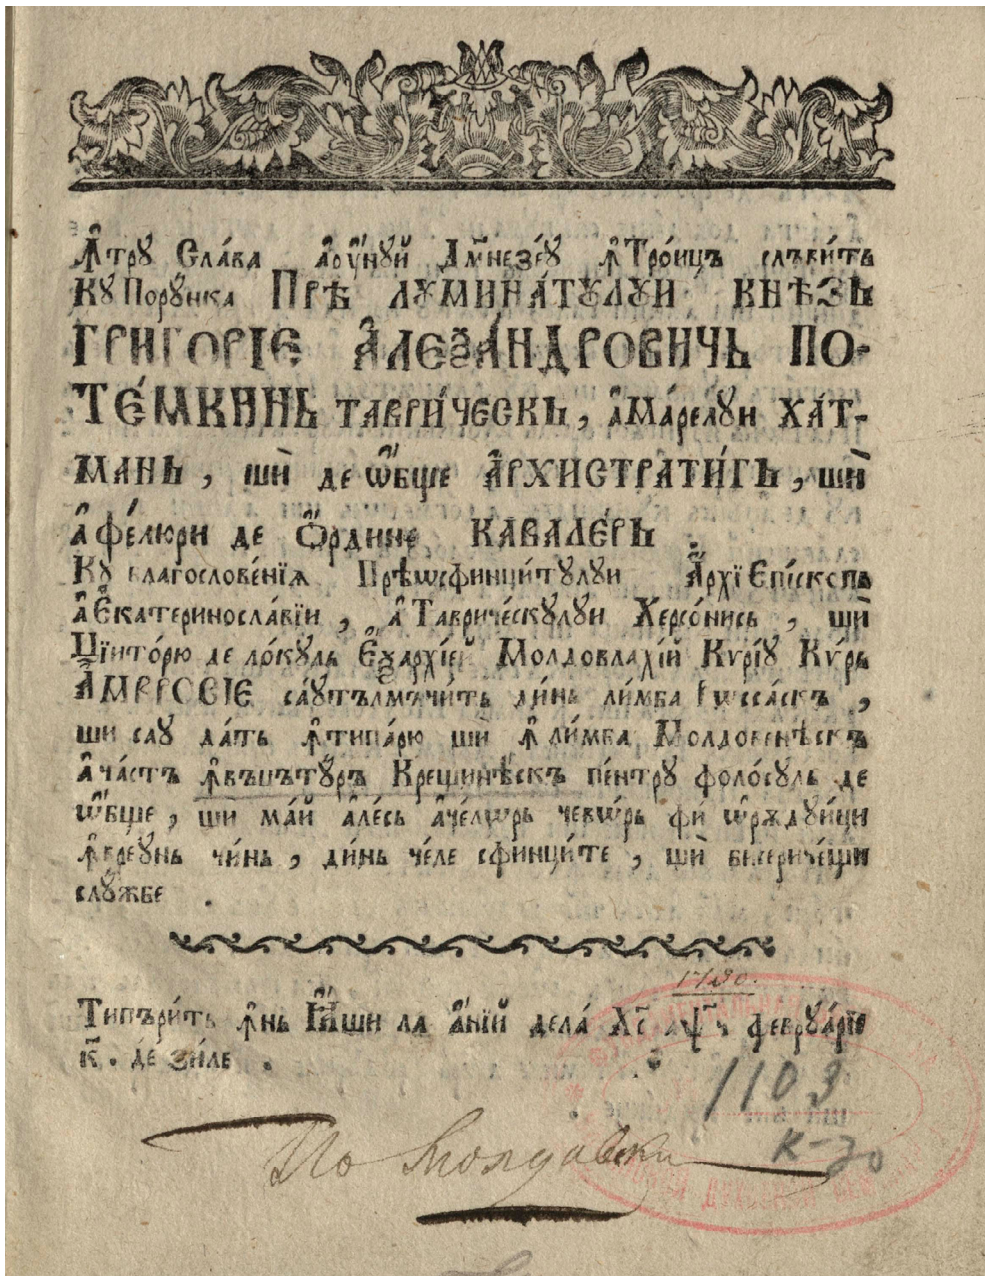 Ꙟтру Сла́ва а҆оу́нуй Дм҃незе́у ꙟ҆Тро́ицъ слъви́тъ
Ку Пору́нка Прѣ лумина́тꙋлꙋи кнѣзь
ГРИГОРІЕ А҆ЛЕѮА́НДРОВИЧЬ ПО-
ТЕ́МКИНЬ ТАВРИ́ЧЕСКЬ, а҆ма́релꙋи ХА́Т-
МАНЬ, шѝ де ѡ҆́бще А҆РХИСТРАТИ́ГЬ, шѝ
а҆фе́люри де О҆́рдине КАВАЛЕ́РЬ.
Кꙋ благослове́нїѧ Прѣѡсфинци́тꙋлꙋи А҆рхїЕпі́скопꙋ
а҆Е҆катериносла́вїи, а҆Таври́ческꙋлꙋи Херсо́нись, шѝ
Цїито́рю де ло́кꙋль Е҆ѯархі́ей Молдовлахі́й Кѵ́рїꙋ Кѵ́рь
А҆МВРОСІЕ са́ꙋтълмъчи́тъ ди́нь ли́мба Рꙋсса́скъ,
ши саꙋ да́тъ ꙟ҆типа́рю шѝ ꙟ҆ ли́мба Молдовенѣ́скъ
а҆ча́стъ ꙟ҆въцътꙋ́ръ Крещинѣ́скъ пе́нтрꙋ фоло́сꙋль де
ѡ҆́бще, ши ма́й а҆ле́сь а҆че́лѡрь чевѡ́рь фи́ ѡ҆рѫдꙋи́ци
ꙟ҆вре́ꙋнь чи́нь, ди́нь че́ле сфинци́те, шѝ бисериче́щи
слꙋ́жбе.
1790.
Типъри́тъ ꙟ҆нь Ꙗ҆́ши ла а҆́нїй дела́ Хс҃ аѱ҃ч феврꙋа́рїе
к҃. де зи́ле.
1103
К-30
По Молдавски